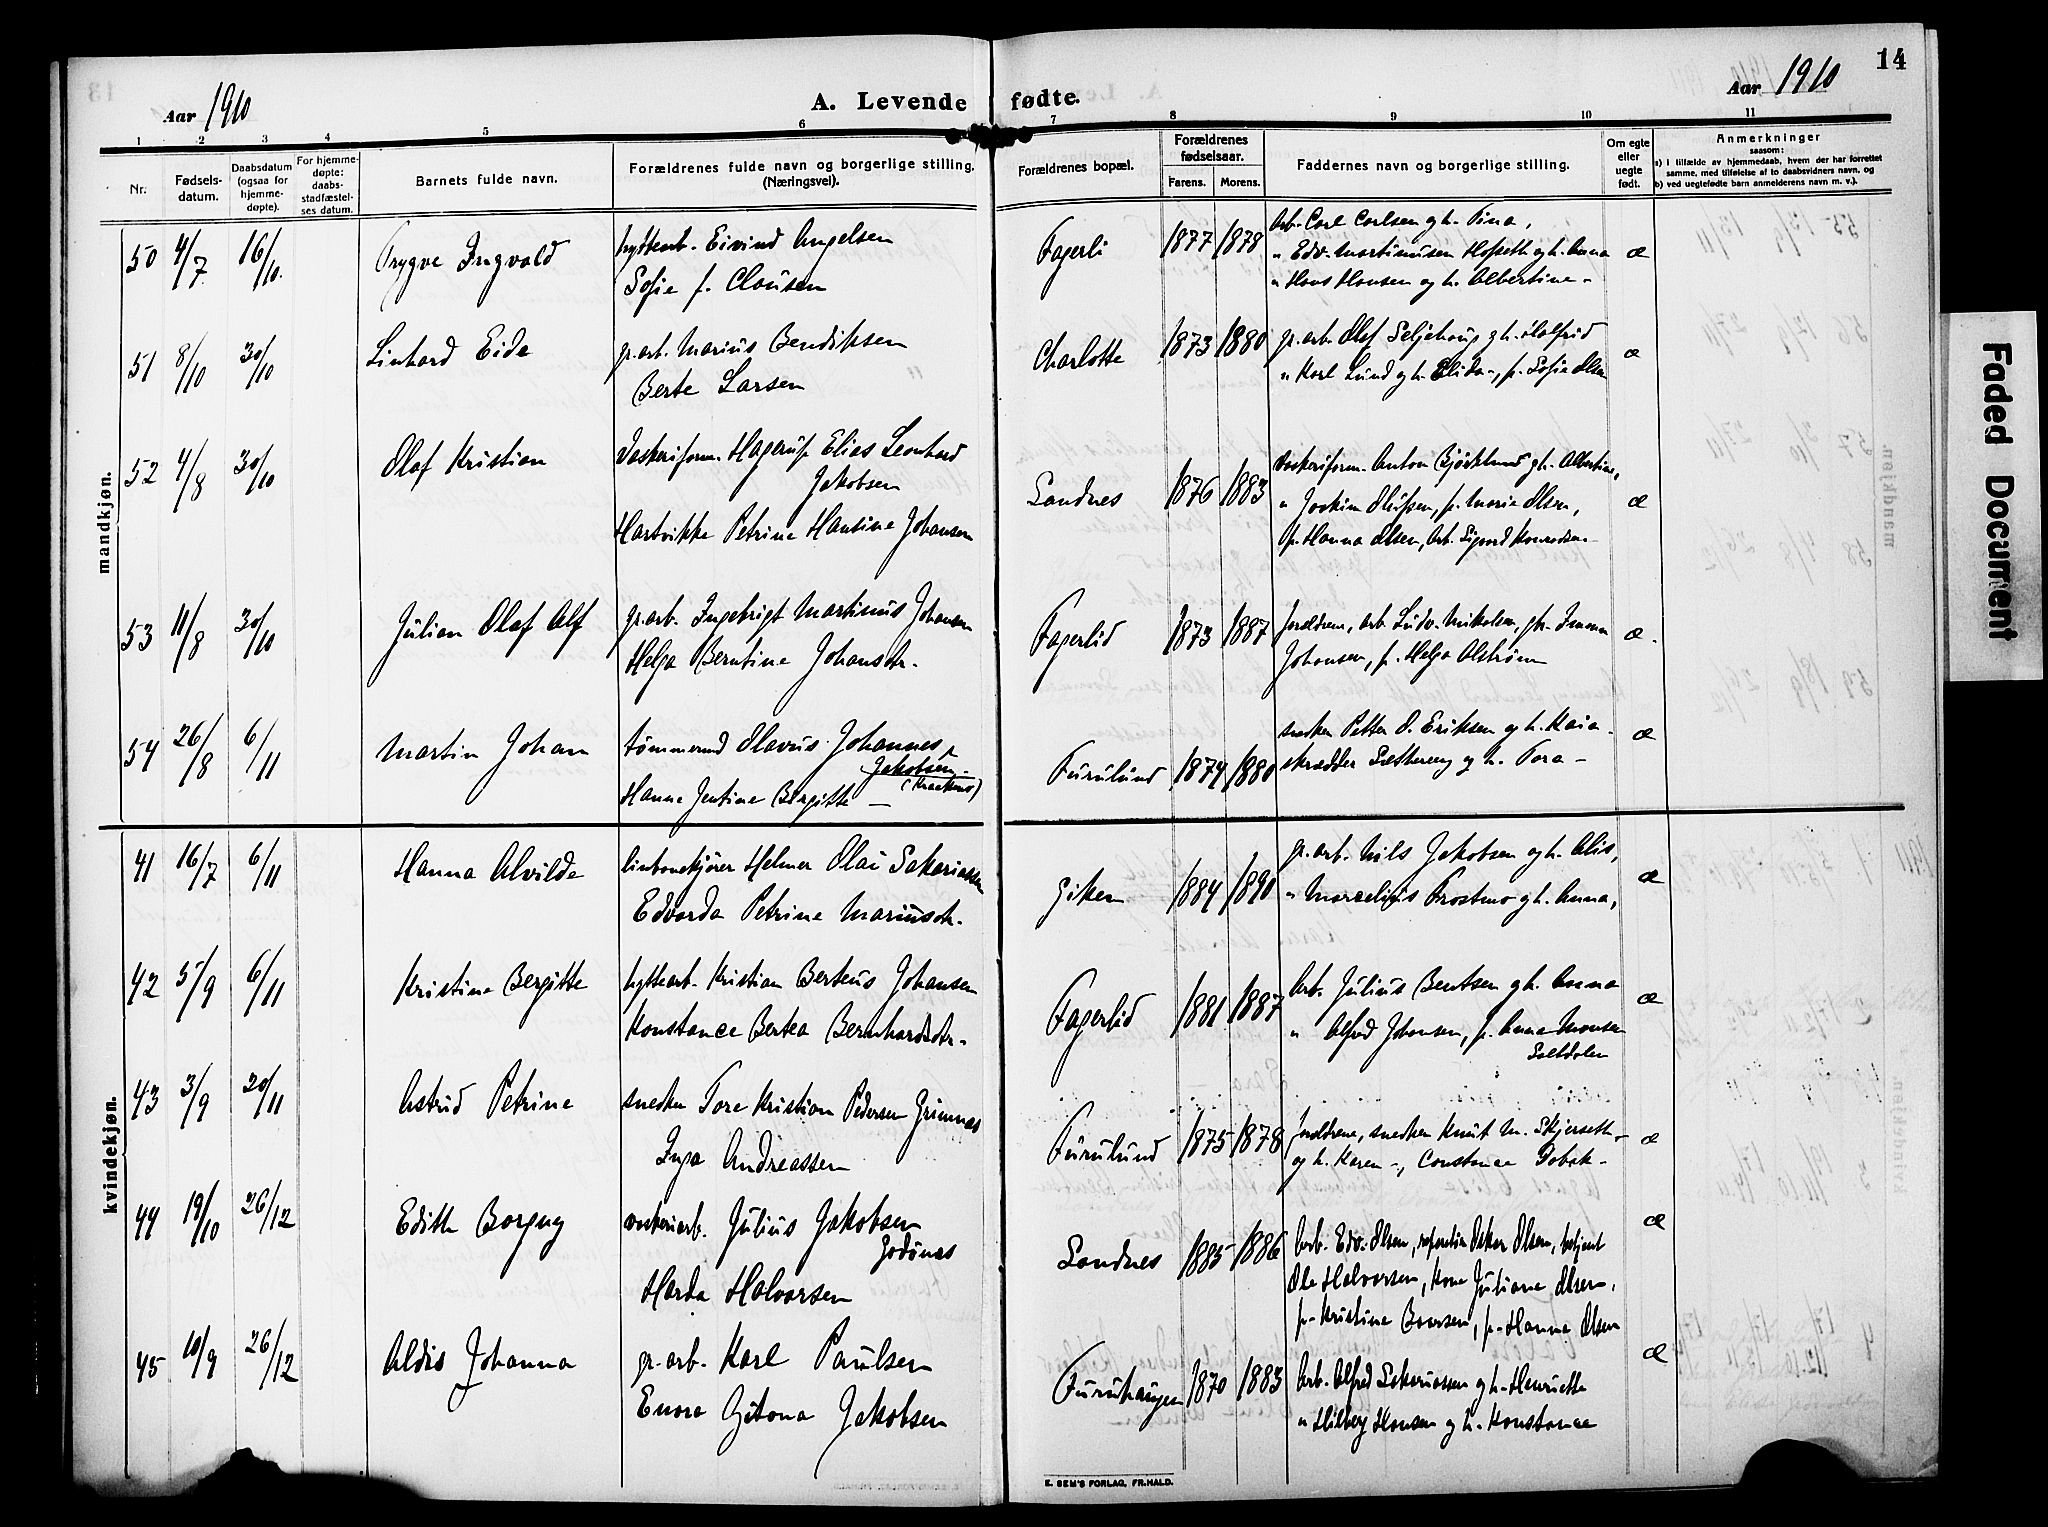 14
Aar 1910
A. Levende fødte.
Aar 1910
1 2 3 4 5 6 7 8 9 10 11
Nr.
Fødsels-
datum.
Daabsdatum
(ogsaa for
hjemme-
døpte).
For hjemme-
døpte:
daabs-
stadfæstel-
ses datum.
Barnets fulde navn.
Forældrenes fulde navn og borgerlige stilling.
(Næringsvei).
Forældrenes bopæl.
Forældrenes
fødselsaar.
Farens. Morens.
Faddernes navn og borgerlige stilling.
Om egte
eller
uegte
født.
Anmerkninger
saasom:
a) i tilfælde av hjemmedaab, hvem der har forrettet
samme, med tilføielse af to daabsvidners navn, og
b) ved uegtefødte barn anmelderens navn m. v.).
mandkjøn.
50 4/7 16/10 Trygve Ingvald
hyttearb. Eivind Angelsen
Sofie f. Clausen
Fagerli 1877 1878
Arb. Carl Carlsen og h. Tina,
" Edv. Martinusen Hofseth og h. Anna
" Hans Hansen og h. Albertine -
æ
51 8/10 30/10 Linhard Eide
gr.arb. Marius Bendiksen
Berte Larsen
Charlotte 1873 1880
gr.arb. Olaf Seljehaug og h. Halfrid
" Karl Lund og h. Elida -, p. Sofie Olsen
æ
52 4/8 30/10 Olaf Kristian
Vaskeriform. Hagerup Elias Leonhard
Jakobsen
Hartvikke Petrine Hansine Johansen
Sandnes 1876 1883
Vaskeriform. Anton Bjørklund og h. Albertine,
" Joakim Olufsen, p. Marie Olsen,
p. Hanna Olsen, Arb. Sigurd Konradsen -
æ
53 11/8 30/10 Julian Olaf Alf
gr.arb. Ingebrigt Martinus Johansen
Helga Berntine Johansdtr.
Fagerlid 1873 1887
forældrene, arb. Ludv. Mikalsen,
Johansen, p. Helga Alstrøm
æ
54 26/8 6/11 Martin Johan
tømmermd Olavus Johannes
Jakobsen
Hanne Jentine Bergitte —
Furulund 1874 1880
snedker Petter O. Eriksen og h. Kaia -
skrædder Sætereng og h. Tora -
æ
kvindekjøn.
41 16/7 6/11 Hanna Alvilde
linbanekjører Helmer Olai Sakariassen
Edvarda Petrine Mariusdtr.
Giken 1884 1890
gr.arb. Nils Jakobsen og h. Alis,
" Marcelius Trostmo og h. Anna,
æ
42 5/9 6/11 Kristine Bergitte
hyttearb. Kristian Berteus Johansen
Konstance Bertea Bernhardsdtr.
Fagerlid 1881 1887
Arb. Julius Bentsen og h. Anna
" Alfred Johansen, p. Anna Monsen
Saltdalen
æ
43 3/9 20/11 Astrid Petrine
snedker Tore Kristian Pedersen Grimnes
Inga Andreassen
Furulund 1875 1878
forældrene, snedker Knut M. Skjerseth -
og h. Karen -, Constance Dobak -
æ
44 19/10 26/12 Edith Borgny
vaskeriarb. Julius Jakobsen
Godønes
Harda Halvorsen
Sandnes 1885 1886
Arb. Edv. Olsen, reparatør Oskar Olsen, betjent
Ole Halvorsen, kone Juliane Olsen,
p. Kristine Baarsen, p. Hanna Olsen
æ
45 10/9 26/12 Aldis Johanna
gr.arb. Karl Paulsen
Enora Gitona Jakobsen
Furuhaugen 1870 1883
Arb. Alfred Sakariassen og h. Henriette
" Hilberg Hansen og h. Konstance
æ
E. SEM'S FORLAG, FR.HALD.
Faded Document